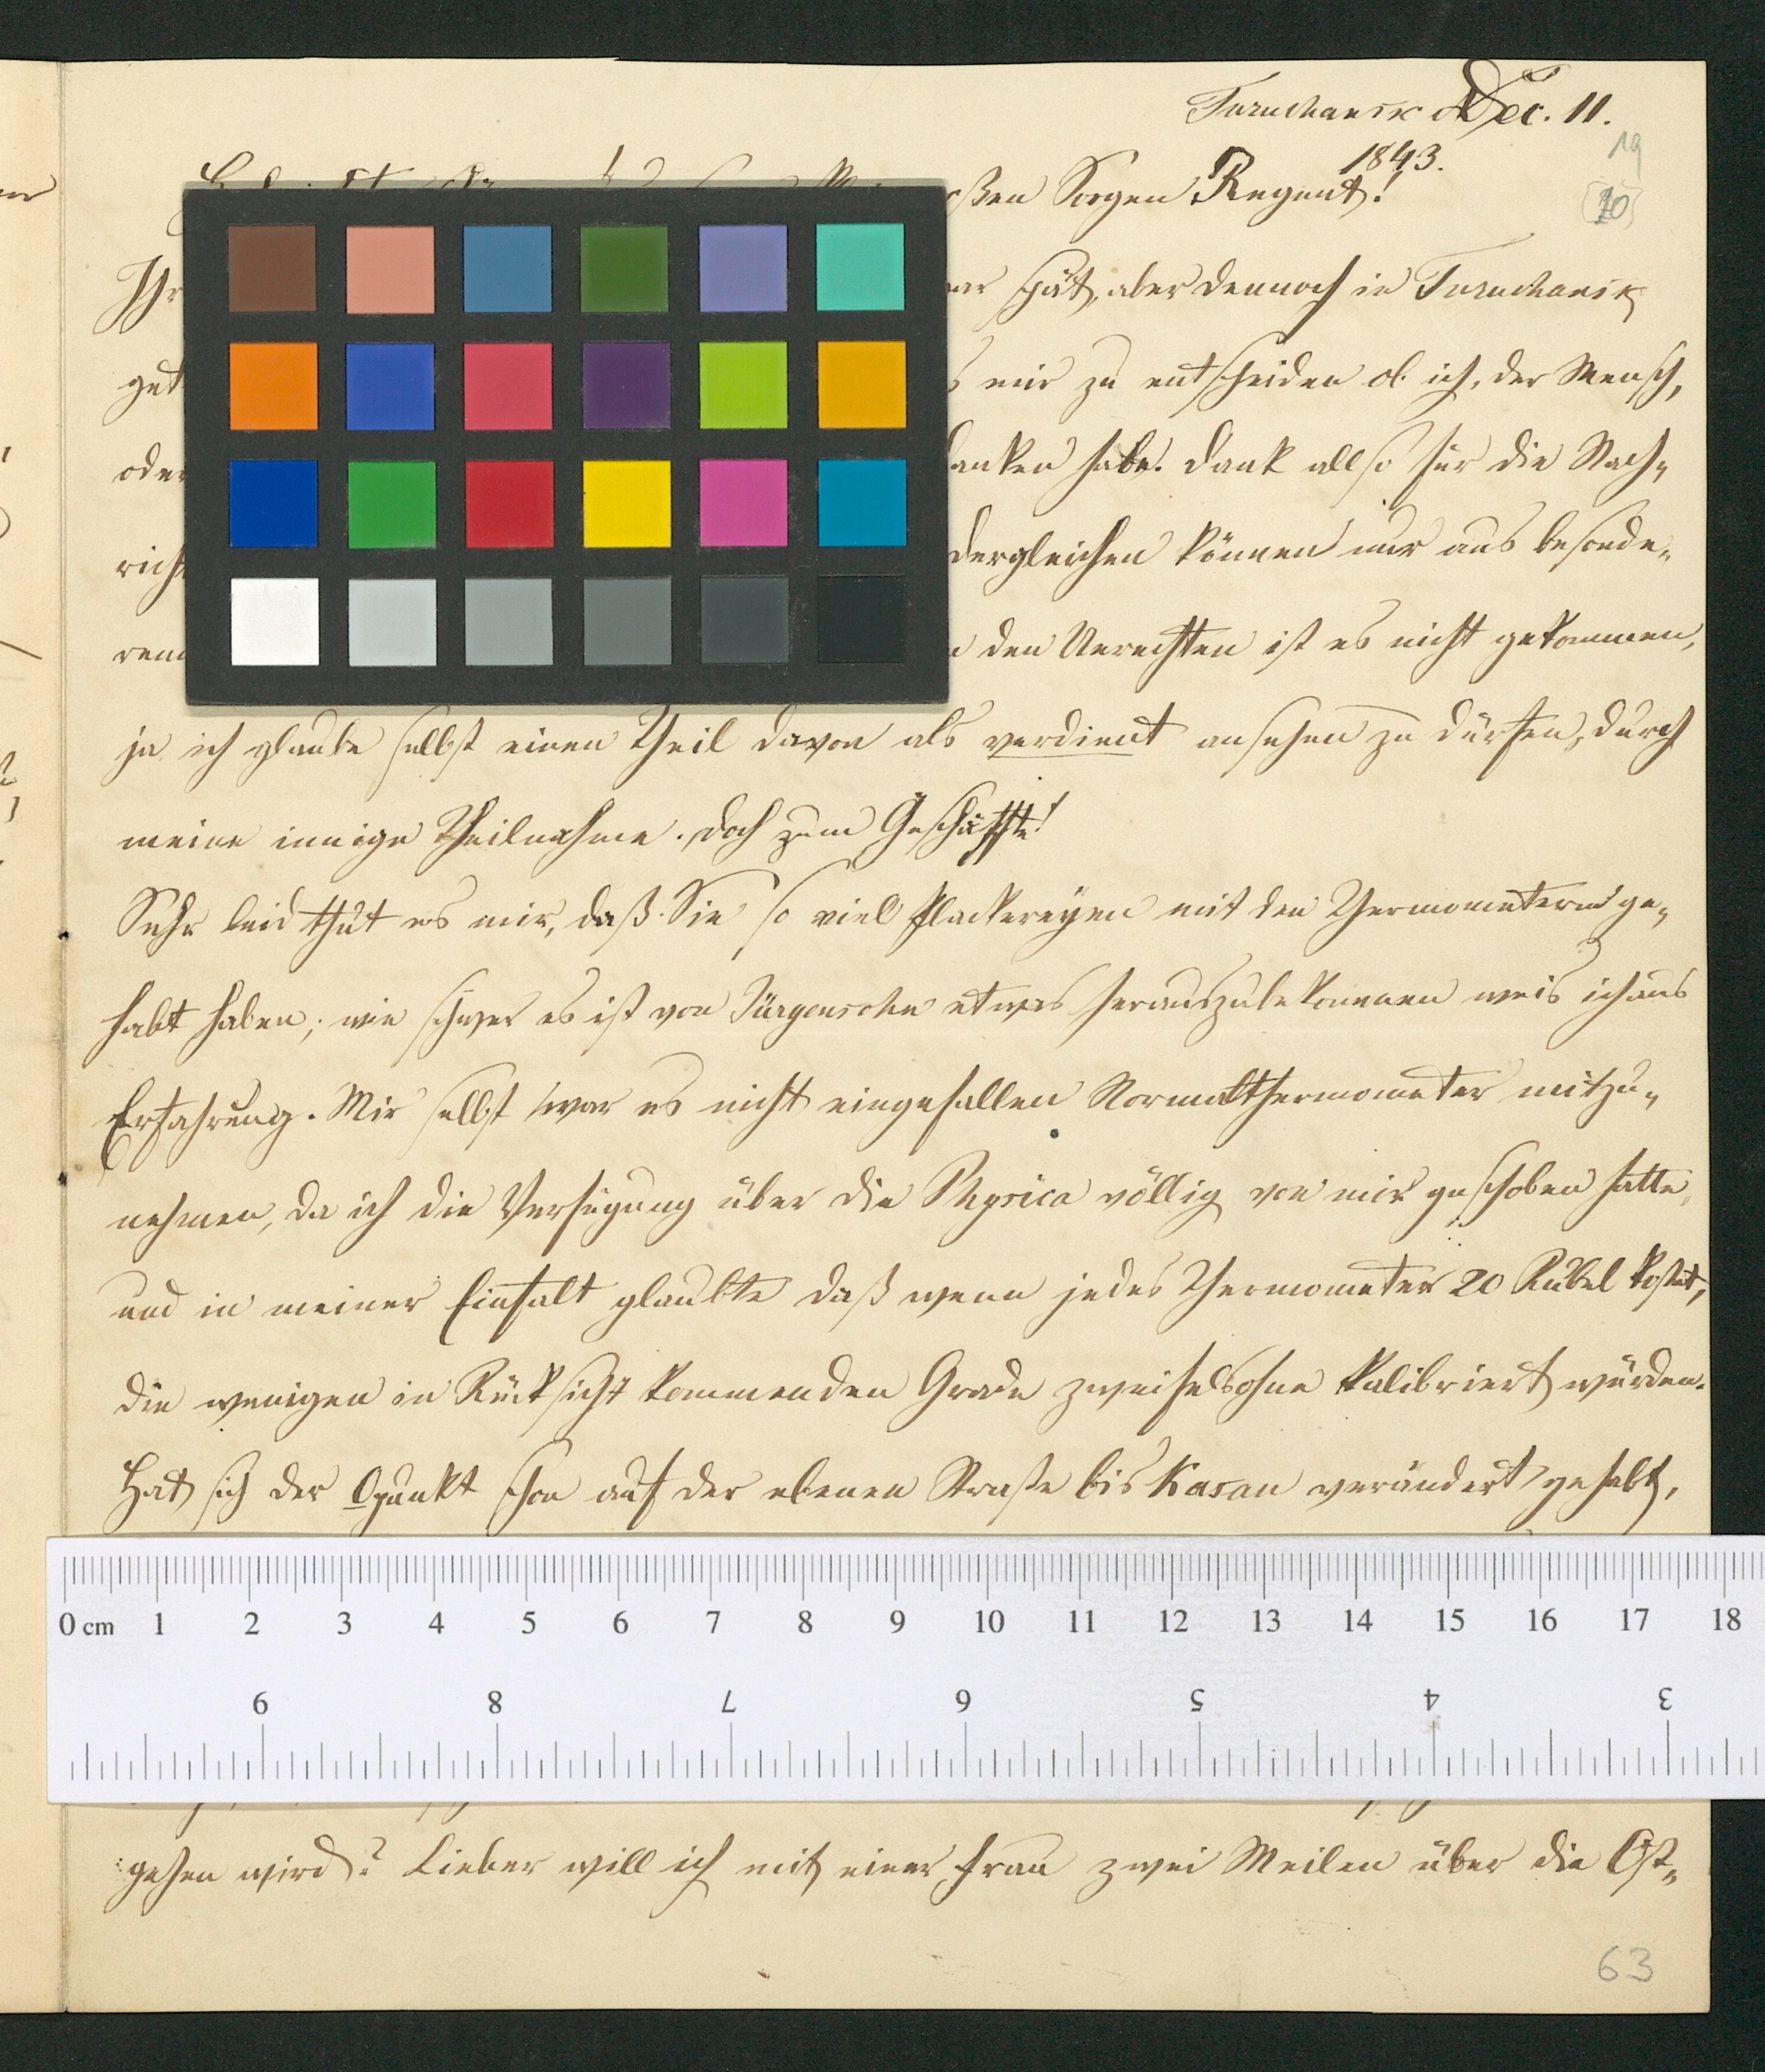 Turuchansk d Dec. 11.
1843.
19
20
oßen Sorgen Regent!
Ihr
ar spät, aber dennoch in Turuchansk
get
s mir zu entscheiden ob ich, der Mensch,
oder
danken habe. Dank allso für die Nach-
rich
dergleichen können nur aus besonde-
rem
den Unrechten ist es nicht gekommen,
ja ich glaube selbst einen Theil davon als verdient ansehen zu dürfen, durch
meine innige Theilnahme. Doch zum Geschäffte!
Sehr leid thut es mir, daß Sie so viel Plackereyen mit den Thermometern ge-
habt haben; wie schwer es ist von Jürgensohn etwas herauszubekommen weis ich aus
Erfahrung. Mir selbst war es nicht eingefallen Normalthermometer mitzu-
nehmen, da ich die Verfügung über die Physica völlig von mir geschoben hatte,
und in meiner Einfalt glaubte daß wenn jedes Thermometer 20 Rubel kostet,
die wenigen in Rücksicht kommenden Grade zweifelsohne kalibriert würden.
Hat sich der 0punkt schon auf der ebenen Straße bis Kasan verändert gehabt,
0 cm 1 2 3 4 5 6 7 8 9 10 11 12 13 14 15 16 17 18
9 8 7 6 5 4 3
gehen wird? Lieber will ich mit einer Frau zwei Meilen über die Ost-
63